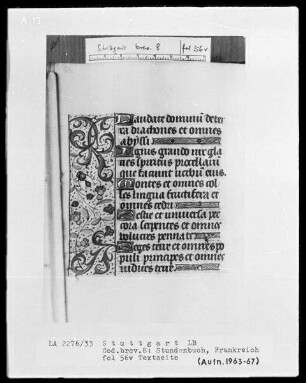 Stuttgart brev. 8 fol 56v
Laudate dominū de ter
ra dracones et omnes
abyssi
Ignis grando nix gla
cies spiritus procellarū
que faciunt verbum eius.
Montes et omnes col
les lingna fructifera et
omnes cedri
Bestie et universa pe
cora serpentes et omnes
volucres pennate
Reges terre et omnes po
puli principes et omnes
iudices terre
LA 2276/33 Stuttgart LB
Cod.brev.8: Stundenbuch, Frankreich
fol 56v Textseite
(Aufn. 1963-67)